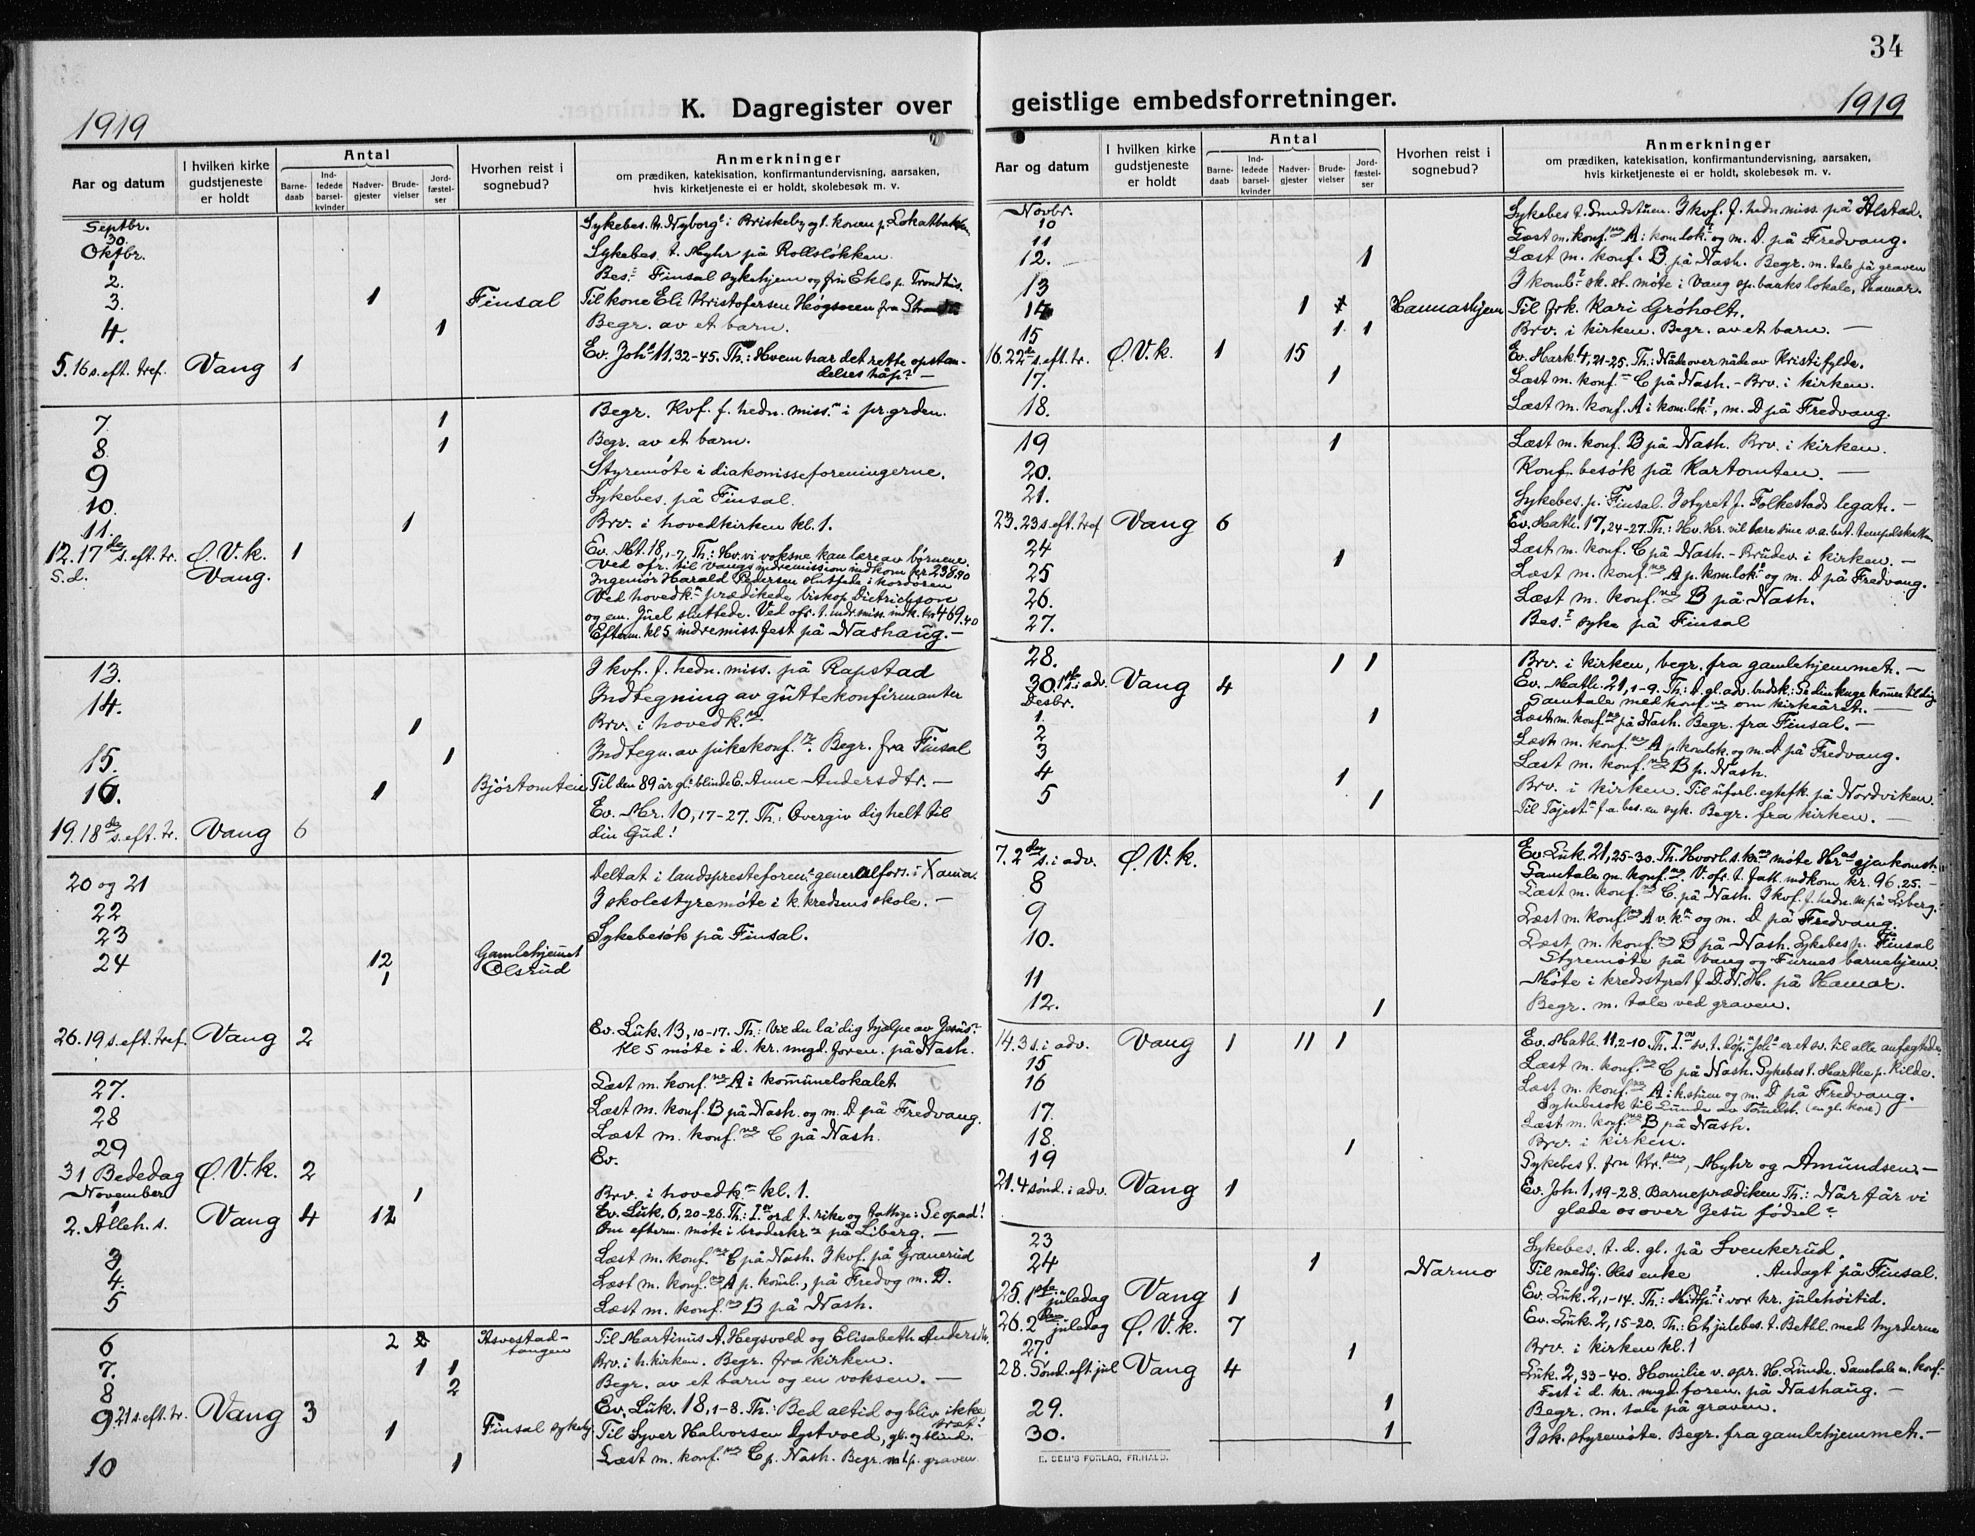 34
1919
K. Dagregister over geistlige embedsforretninger.
1919
Aar og datum
I hvilken kirke gudstjeneste er holdt
Antal
Barne-daab
Ind-ledede barsel-kvinder
Nadver-gjester
Brude-vielser
Jord-fæstel-ser
Hvorhen reist i sognebud?
Anmerkninger
om prædiken, katekisation, konfirmantundervisning, aarsaken,
hvis kirketjeneste ei er holdt, skolebesøk m. v.
Septbr.
30.
Oktbr.
1 Sykebes. t. Myhr på Rollsløkken.
2. Bes. Finsal sykehjem og fru Eklo p.
3. 1 Finsal Til kone Eli Kristofersen
4. 1 Begr. av et barn.
5. 16 s. eft. tref. Vang 1 Ev. Joh. 11, 32-45. Th: Hvem har det rette opstan-
delses håp? —
7. 1 Begr. Kvf. f. hedn. miss. i pr.grden.
8. 1 Begr. av et barn.
9 Styremøte i diakonisseforeningerne.
10. Sykebes. på Finsal.
11. 1 Brv. i hovedkirken kl. 1.
12. 17de s. eft. tr. Ø. V. k. 1 Ev. Mt. 18, 1-7. Th: Hv. vi voksne kan lære av børnene.
S.d. Vang. Ved ofr. til Vangs indremission indkom kr 238.90
Ingeniør Harald Pedersen sluttede i kordøren
Ved hovedk. prædikede biskop Dietrichson
og em. Juel sluttede. Ved ofr. t. indr.miss. indk. kr 469.40
Efterm. kl 5 indremiss. fest på Nashaug. —
13. I kvf. f. hedn. miss. på Rapstad
14. Indtegning av guttekonfirmanter
1 Brv. i hovedk.
15. 1 Indtegn. av pikekonf. Begr. fra Finsal
16. 1 Bjørtomteien Til den 89 år gl. blinde E. Anne Andersdtr. —
19. 18de s. eft. tr. Vang 6 Ev. Mr. 10, 17-27. Th: Overgiv dig helt til
din Gud!
20 og 21 Deltat i landspresteforen. generalfors. i Xania.
22 I skolestyremøte i k. kredsens skole. —
23 Sykebesøk på Finsal.
24 12 Gamlehjemmet
1 Olsrud
26. 19 s. eft. tref. Vang 2 Ev. Luk. 13, 10-17. Th: Vil du la dig hjælpe av Jesus?
Kl 5 møte i d. kr. ungd. foren. på Nash.
27. Læst m. konf. A i kommunelokalet
28 Læst m. konf. B på Nash. og m. D på Fredvang.
29 Læst m. konf. C på Nash.
31 Bededag Ø. V. k. 2 Ev.
November
1 1 Brv. i hovedk. kl. 1.
2. Alleh. s. Vang 4 12 Ev. Luk. 6, 20-26. Th: ord t. rike og fattige: Se opad!
Om efterm. møte i på Liberg. —
3 Læst m. konf. C på Nash. I kvf. på Granerud
4. Læst m. konf. A p. koml., på Fredvg m. D.
5 Læst m. konf. B på Nash.
6 2 Til Martinus A. Hegsvold og Elisabeth
7. 1 1 Brv. i h.kirken. Begr. fra kirken.
8 2 Begr. av et barn og en voksen. —
9. 21 s. eft. tr. Vang 3 Ev. Luk. 18, 1-8. Th: Bed altid og bliv ikke
træt!
1 Finsal sykehj. Til Syver Halvorsen gl. og blind.
10 1 Læst m. konf. C p. Nash. Begr. m t. p. graven
Aar og datum
I hvilken kirke gudstjeneste er holdt
Antal
Barne-daab
Ind-ledede barsel-kvinder
Nadver-gjester
Brude-vielser
Jord-fæstel-ser
Hvorhen reist i sognebud?
Anmerkninger
om prædiken, katekisation, konfirmantundervisning, aarsaken,
hvis kirketjeneste ei er holdt, skolebesøk m. v.
Novbr.
10 Sykebes. t. Smedstuen. I kvf. f. hedn. miss. på Alstad.
11 Læst m. konf. A i kom.lok. og m. D. på Fredvang.
12. 1 Læst m. konf. B på Nash. Begr. m. tale på graven
13 sk. st. møte i Vang sp.banks lokale, Hamar.
14 1 Til frk. Kari Grøholt.
15 1 1 Brv. i kirken. Begr. av et barn. —
16. 22de s. eft. tr. Ø. V. k. 1 15 Ev. Mark. 4, 21-25. Th: Nåde over nåde av Kristi fylde.
17. 1 Læst m. konf. C på Nash. - Brv. i kirken.
18. Læst m. konf. A i kom.lok., m. D på Fredvang.
19 1 Læst m. konf. B på Nash. Brv. i kirken.
20. Konf. besøk på Kartomten. —
21. Sykebes. p. Finsal. I styret f. Folkestads legat. —
23. 23 s. eft. tref Vang 6 Ev. Math. 17, 24-27. Th:
24 Læst m. konf. C på Nash. - Brudev. i kirken. —
25 1 Læst m. konf. A p. kom.lok. og m. D på Fredvang.
26. Læst m. konf. B på Nash.
27. Bes. syke på Finsal
28. 1 1 Brv. i kirken, begr. fra gamlehjemmet. —
30. 1ste s. i adv. Vang 4 Ev. Math. 21, 1-9. Th: D. gl. adv. budsk: Se din konge kommer til dig
Desbr. Samtale med konf. om kirkeåret. —
1. 1 Læst m. konf. på Nash. Begr. fra Finsal. —
2 Læst m. konf. A p. komlok. og m. D på Fredvang.
3 Læst m. konf. B p. Nash.
4 1 Brv. i kirken. Til uforl. egtefk. på Nordviken.
5 1 bes. en syk. Begr. fra kirken. —
7. 2den s. i adv. Ø. V. k. Ev. Luk. 21, 25-30. Th. møte gjenkomst
Samtale m. konf. V. ofr. t. fatt. indkom kr. 96.25. —
8 Læst m. konf. C. på Nash. I kvf. f. hedn. m på Liberg.
9 Læst m. konf. A v. k. og m. D på Fredvang.
10. Læst m. konf. B på Nash. Sykebes p. Finsal
Styremøte på Vang og Furnes barnehjem.
11 Møte i kredsstyret f D. N. M. på Hamar.
12. 1 Begr. m. tale ved graven.
14. 3 s. i adv. Vang 1 11 1 Ev. Math. 11, 2-10. Th. er et sv. til alle anfegtede
15 Læst m. konf. C på Nash. Sykebes t. p. Kilde.
16 Læst m. konf. A i k.stuen og m. D på Fredvang.
Sykebesøk til Lunde av Tomelst. (en gl. kone)
17. Læst m. konf. B på Nash.
18. Brv. i kirken.
19 1 Sykebes t. fru Kr., Myhr og Amundsen. —
21. 4 sønd. i adv. Vang 1 Ev. Joh. 1, 19-28. Barneprædiken Th: Når får vi
glæde os over Jesu fødsel?
23 Sykebes. t. d. gl. på Svenkerud.
24 1 Narmo Til medhj. Ols enke . Andagt på Finsal.
25. 1ste juledag Vang 1 Ev. Luk. 2, 1-14. Th: i vor kr. julehøitid.
26. 2den juledag Ø. V. k. 7 Ev. Luk. 2, 15-20. Th: Et julebes. t. Bethl. med hyrderne
27. 1 Brv. i kirken kl. 1
28. Sønd. eft. jul Vang 4 Luk. 2, 33-40. Homilie v. spr. H. Lunde. Samtale m. konf.
Fest i d. kr. ungd. foren. på Nashaug. —
29. 1 Begr. m. tale på graven.
30. 1 I sk.styremøte. Begr. fra gamlehjemmet. —
E. SEM'S FORLAG, FR.HALD.